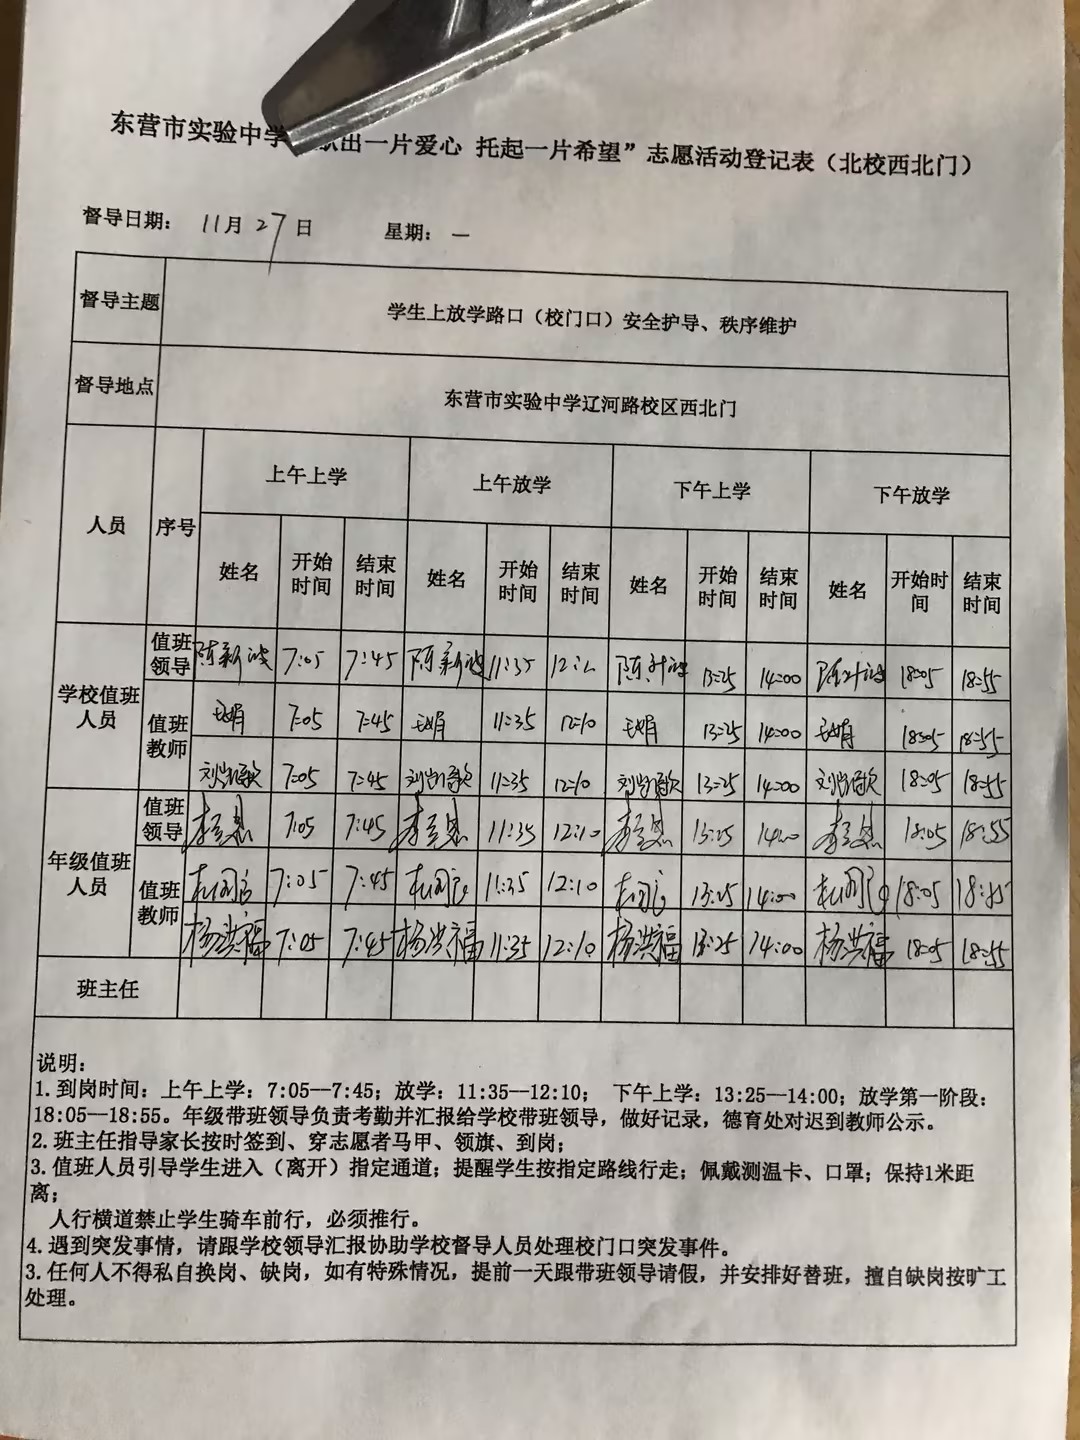 东营市实验中学 出一片爱心 托起一片希望”志愿活动登记表（北校西北门）
督导日期： 11月27日 星期：一
督导主题 学生上放学路口（校门口）安全护导、秩序维护
督导地点 东营市实验中学辽河路校区西北门
人员 序号 上午上学 上午放学 下午上学 下午放学
姓名 开始时间 结束时间 姓名 开始时间 结束时间 姓名 开始时间 结束时间 姓名 开始时间 结束时间
学校值班人员 值班领导 陈新波 7:05 7:45 陈新波 11:35 陈新波 13:25 14:00 陈新波 18:05 18:55
值班教师 7:05 7:45 11:35 12:10 13:25 14:00 18:05 18:55
刘 7:05 7:45 刘 11:35 12:10 刘 13:25 14:00 刘 18:05 18:55
年级值班人员 值班领导 李 7:05 7:45 李 11:35 12:10 李 13:25 14:00 李 18:05 18:55
值班教师 杜 7:05 7:45 杜 11:35 12:10 杜 13:25 14:00 杜 18:05 18:55
杨洪福 7:05 7:45 杨洪福 11:35 12:10 杨洪福 13:25 14:00 杨洪福 18:05 18:55
班主任
说明：
1. 到岗时间：上午上学：7:05—7:45；放学：11:35—12:10； 下午上学：13:25—14:00；放学第一阶段：
18:05—18:55。年级带班领导负责考勤并汇报给学校带班领导，做好记录，德育处对迟到教师公示。
2. 班主任指导家长按时签到、穿志愿者马甲、领旗、到岗；
3. 值班人员引导学生进入（离开）指定通道；提醒学生按指定路线行走；佩戴测温卡、口罩；保持1米距
离；
人行横道禁止学生骑车前行，必须推行。
4. 遇到突发事情，请跟学校领导汇报协助学校督导人员处理校门口突发事件。
3. 任何人不得私自换岗、缺岗，如有特殊情况，提前一天跟带班领导请假，并安排好替班，擅自缺岗按旷工
处理。